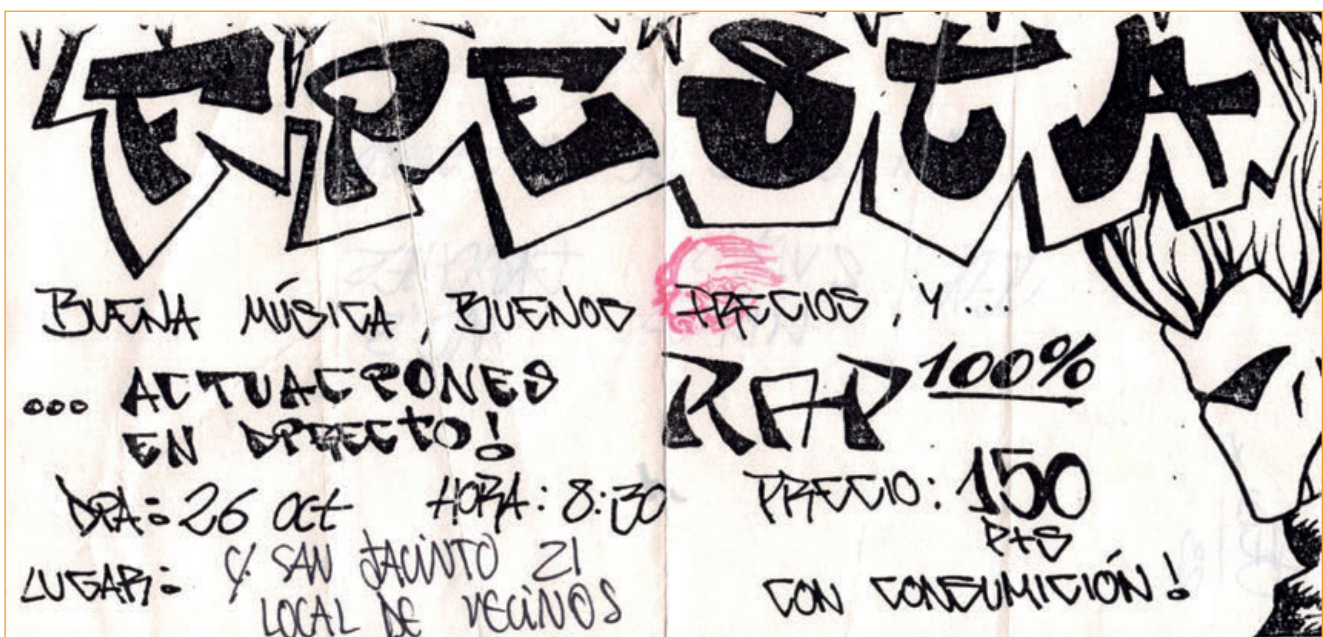 FIESTA
BUENA MÚSICA, BUENOS PRECIOS, Y...
... ACTUACIONES
EN DIRECTO!
RAP 100%
DIA: 26 oct HORA: 8:30
LUGAR: C/ SAN JACINTO 21
LOCAL DE VECINOS
PRECIO: 150
PtS
CON CONSUMICIÓN!